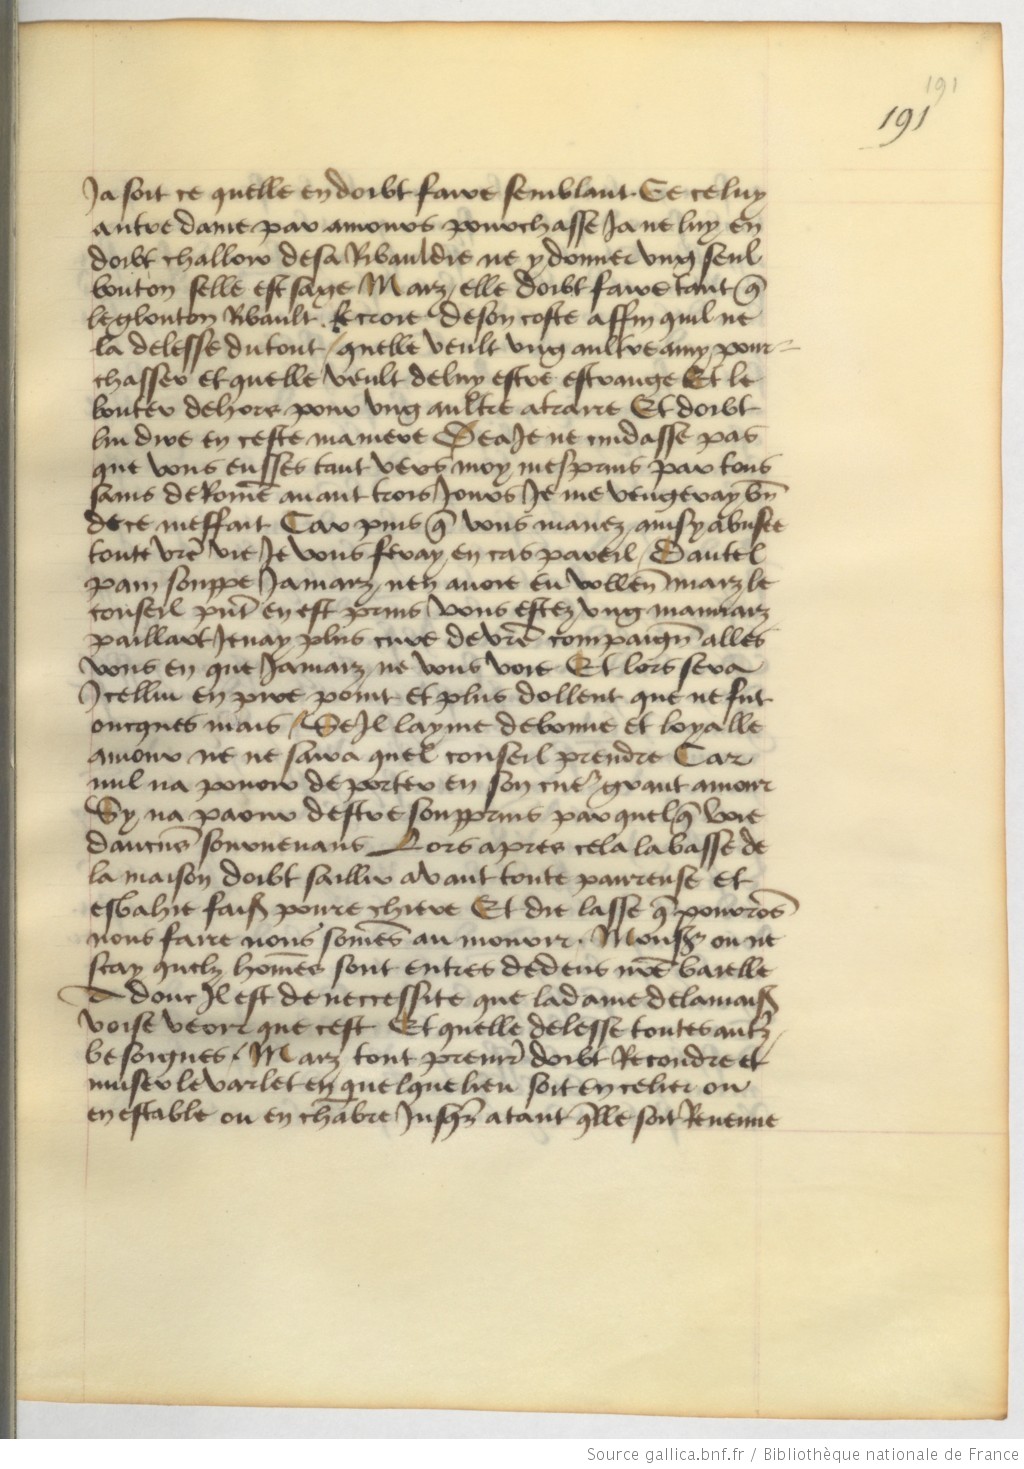 191
191
Ja soit ce quelle en doibt faire semblant. Se celuy
autre dame par amours pourchasse Ja ne luy en
doibt challoir de sa Ribauldie ne y donner ung seul
bouton selle est saige Marz elle doibt faire tant q̄
le glouton Ribault se croie de son coste affin quil ne
la delesse du tout / quelle veult ung aultre amy pour-
chasser et quelle veult de luy estre estrange Et le
bouter dehors pour ung aultre atraire Et doibt
luy dire en ceste maniere Dea Je ne cuidasse pas
que vous eusses tant vers moy mesprins par tous
sains de Rome avant trois Jours Je me vengeray bn̄
de ce meffait Car puis q̄ vous mavez ainsy abusee
toute vr̄e vie Je vous feray en cas pareil / Dautel
pain souppe Jamaiz nen avoie eu vollen̄ maiz le
conseil pn̄t en est prins vous estez ung mauvaiz
paillart Je nay plus cure de vr̄e compaign̄ alles
vous en que Jamaiz ne vous voie Et lors sera
Icellui en pire point et plus dollent que ne fut
oncques mais / Se Il layme de bonne et loyalle
amour ne ne sara quel conseil prendre Car
nul na pouoir de porter en son cuer grant amour
Sy na paour destre sourprins par quelq̄ voie
daucuns sourvenans Lors apres cela la basse de
la maison doibt saillir avant toute paoureuse et
esbahie fais̄ poure chiere Et die lasse q̄ pourrōs
nous faire nous som̄es au mourir. Mons̄ ou ne
scay quelz hom̄es sont entres dedens nr̄e baielle
A donc Il est de neccessite que la dame de la mais̄
voise veoir que cest Et quelle delesse toutes autz
besoignes / Marz tout premier doibt Recondre et
muser le varlet en quelque lieu soit en celier ou
en estable ou en chābre Jusq̄z a tant q̄lle soit Revenue
Source gallica.bnf.fr / Bibliothèque nationale de France